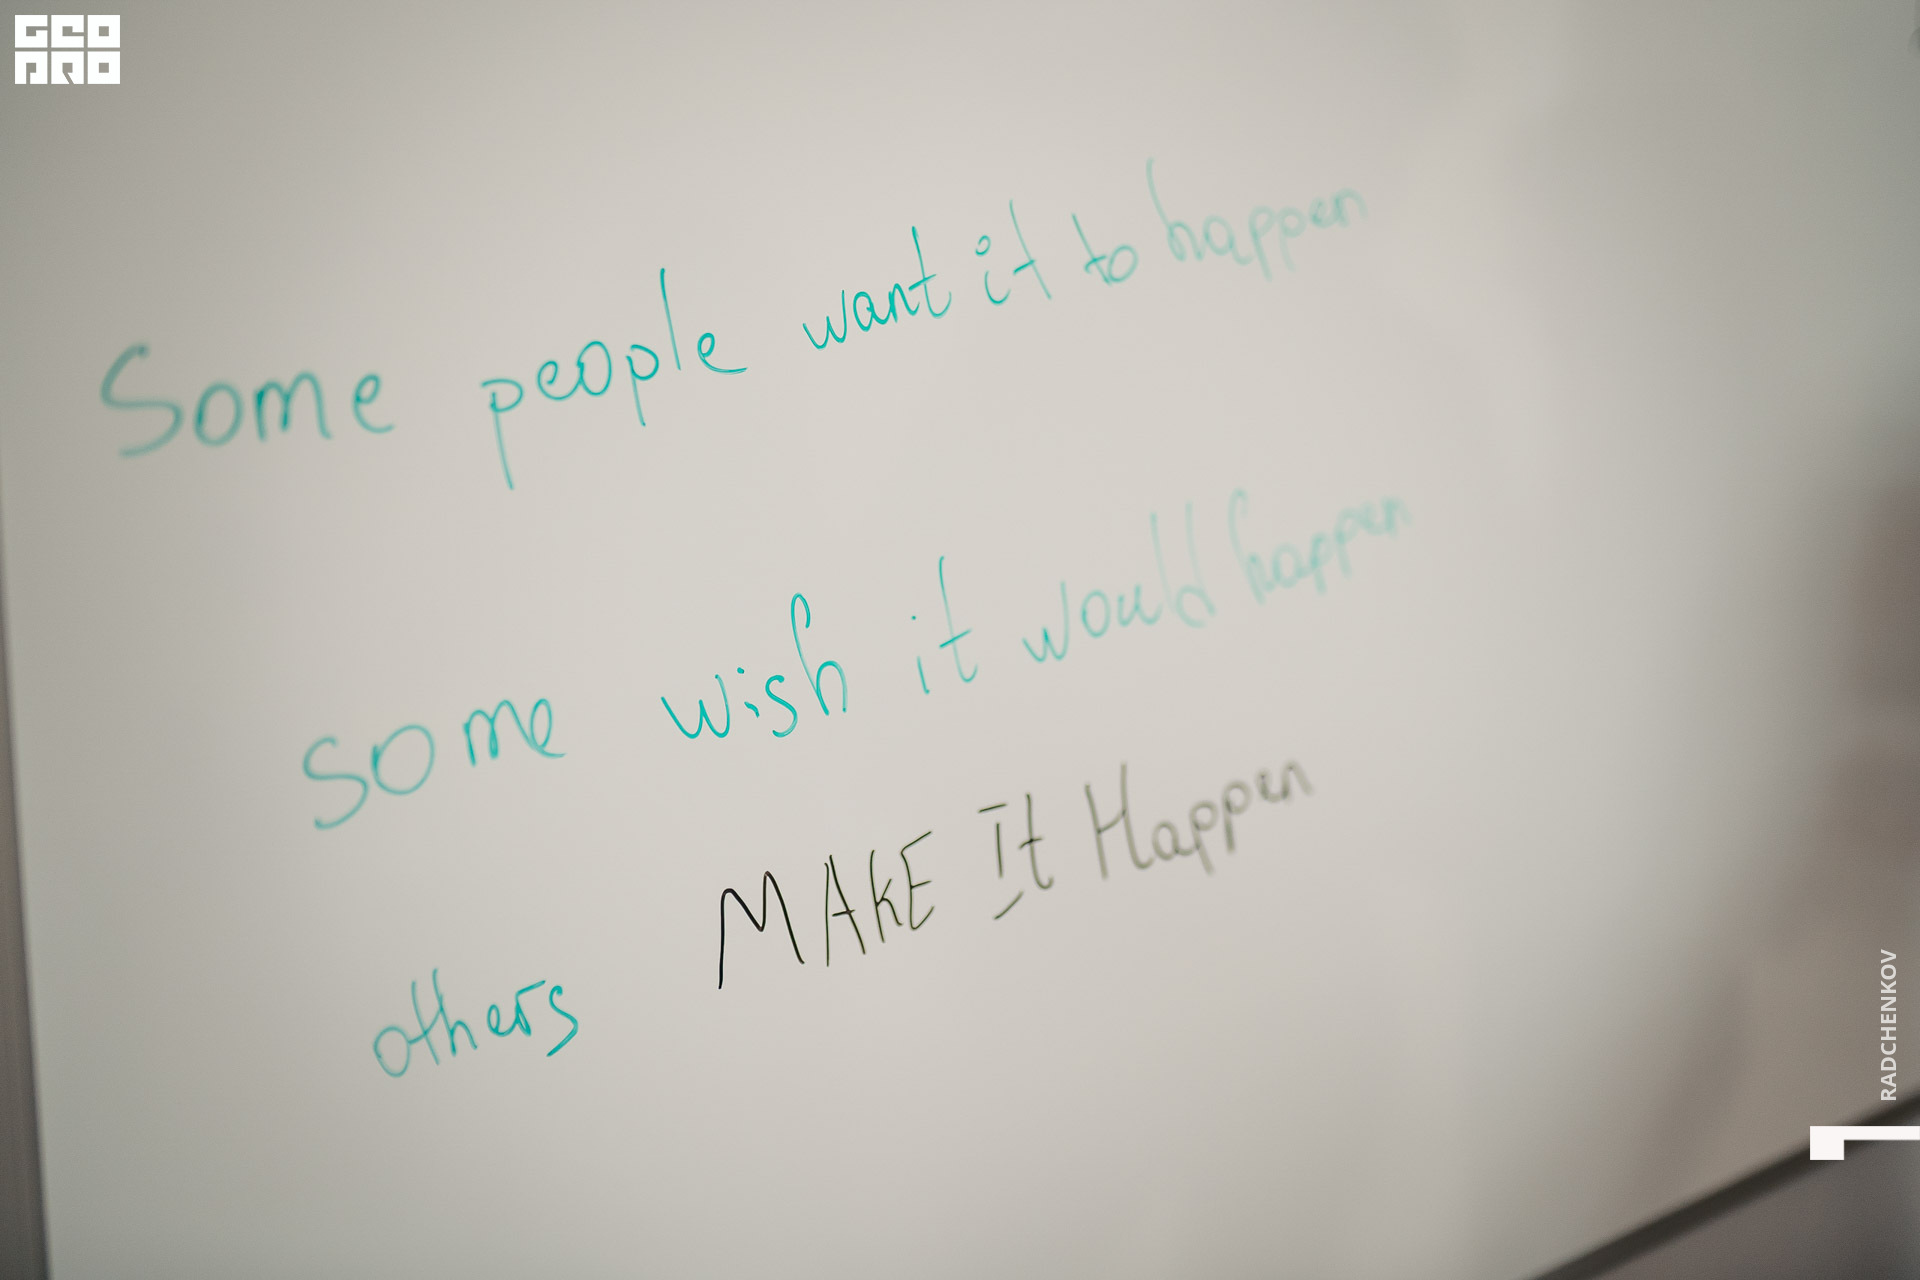 GEO
PRO
Some people want it to happen
some wish it would happen
others MAKE It Happen
RADCHENKOV